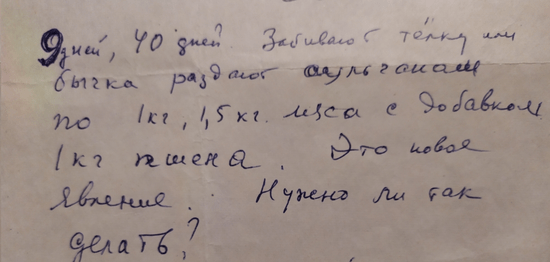 9 дней, 40 дней. Забивают тёлку или
бычка раздают сельчанам
по 1 кг, 1,5 кг. мяса с добавком
1 кг пшена. Это новое
явление. Нужно ли так
делать?